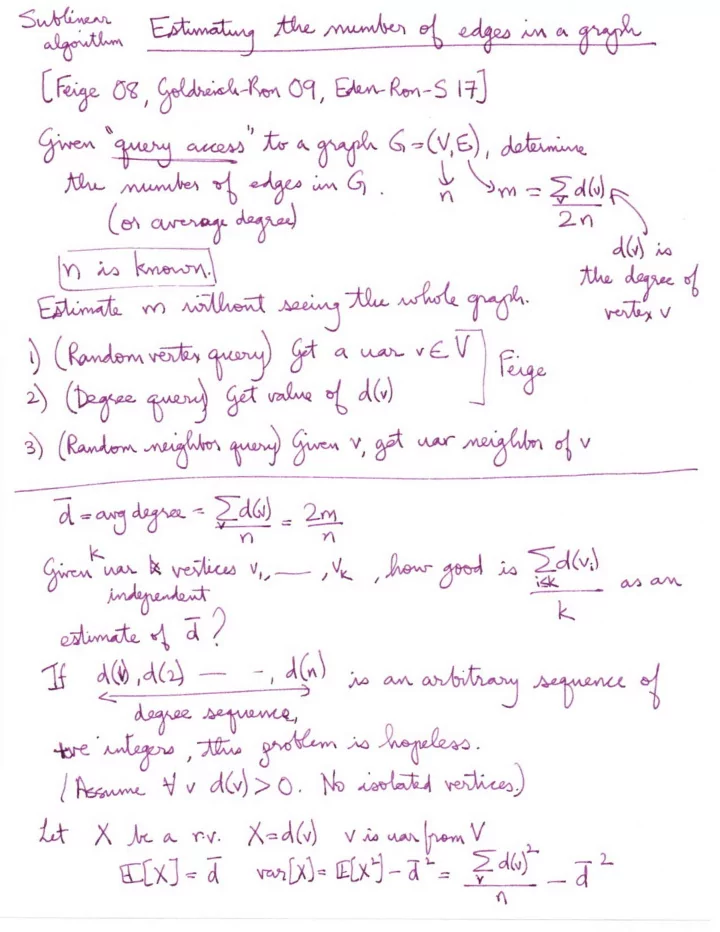 Sublinear algorithm
Estimating the number of edges in a graph
[Feige 08, Goldreich-Ron 09, Eden-Ron-S 17]
Given "query access" to a graph G=(V,E), determine
the number of edges in G. ↓ n ↘ m = Σ_v d(v) / 2n
(or average degree)
d(v) is
the degree of
vertex v
n is known.
Estimate m without seeing the whole graph.
1) (Random vertex query) Get a uar v∈V ] Feige
2) (Degree query) Get value of d(v)
3) (Random neighbor query) Given v, get uar neighbor of v
d̄ = avg degree = Σ_v d(v) / n = 2m / n
Given k uar vertices v₁, —, v_k, how good is Σ_{i≤k} d(v_i) / k as an
independent
estimate of d̄ ?
If d(1), d(2) — - -, d(n) is an arbitrary sequence of
degree sequence,
+ve integers, this problem is hopeless.
(Assume ∀ v d(v) > 0. No isolated vertices.)
Let X be a r.v. X=d(v) v is uar from V
E[X] = d̄ var[X] = E[X²] - d̄² = Σ_v d(v)² / n - d̄²